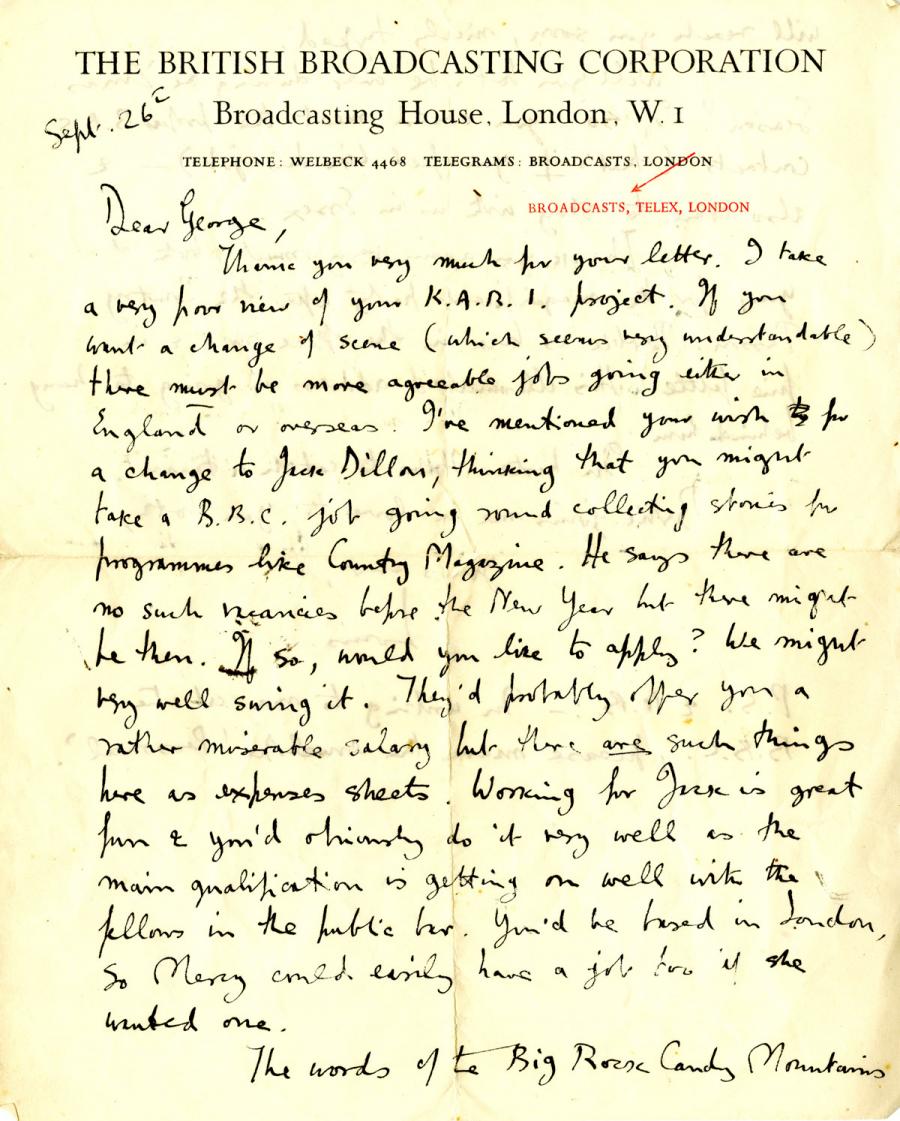 THE BRITISH BROADCASTING CORPORATION
Broadcasting House, London, W. 1
Sept. 26th
TELEPHONE: WELBECK 4468 TELEGRAMS: BROADCASTS, LONDON
BROADCASTS, TELEX, LONDON
Dear George,
Thank you very much for your letter. I take
a very poor view of your K.A.R.I. project. If you
want a change of scene (which seems very understandable)
there must be more agreeable jobs going either in
England or overseas. I've mentioned your wish for
a change to Jack Dillon, thinking that you might
take a B.B.C. job going round collecting stories for
programmes like Country Magazine. He says there are
no such vacancies before the New Year but there might
be then. If so, would you like to apply? We might
very well swing it. They'd probably offer you a
rather miserable salary but there are such things
here as expenses sheets. Working for Jack is great
fun & you'd obviously do it very well as the
main qualification is getting on well with the
fellows in the public bar. You'd be based in London,
so Mercy could easily have a job too if she
wanted one.
The words of the Big Rock Candy Mountains